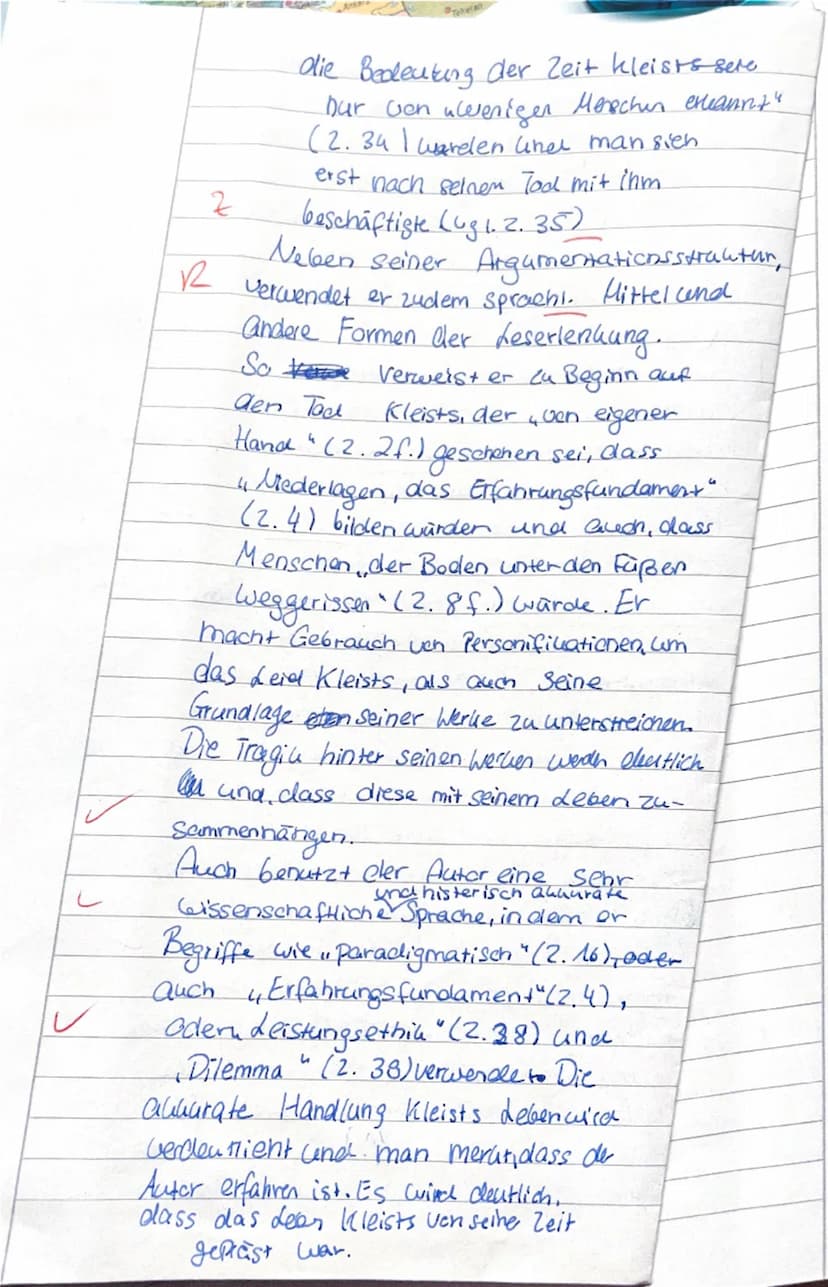 die Bedeutung der Zeit Kleists sei
nur von „wenigen Menschen erkannt“
(Z. 34) wurden und man sich
erst nach seinem Tod mit ihm
Z beschäftigte (vgl. Z. 35)
Neben seiner Argumentationsstruktur,
R verwendet er zudem sprachl. Mittel und
andere Formen der Leserlenkung.
So verweist er zu Beginn auf
den Tod Kleists, der „von eigener
Hand“ (Z. 2f.) geschehen sei, dass
„Niederlagen, das Erfahrungsfundament“
(Z. 4) bilden würden und auch, dass
Menschen „der Boden unter den Füßen
weggerissen“ (Z. 8f.) würde. Er
macht Gebrauch von Personifikationen, um
das Leid Kleists, als auch seine
Grundlage seiner Werke zu unterstreichen.
Die Tragik hinter seinen Werken werden deutlich
und, dass diese mit seinem Leben zu-
sammenhängen.
Auch benutzt der Autor eine sehr
und historisch akkurate
wissenschaftliche Sprache, in dem er
Begriffe wie „paradigmatisch“ (Z. 16), oder
auch „Erfahrungsfundament“ (Z. 4),
oder „Leistungsethik“ (Z. 38) und
„Dilemma“ (Z. 38) verwendet. Die
akkurate Handlung Kleists Leben wird
verdeutlicht und man merkt, dass der
Autor erfahren ist. Es wird deutlich,
dass das Leben Kleists von seiner Zeit
geprägt war.